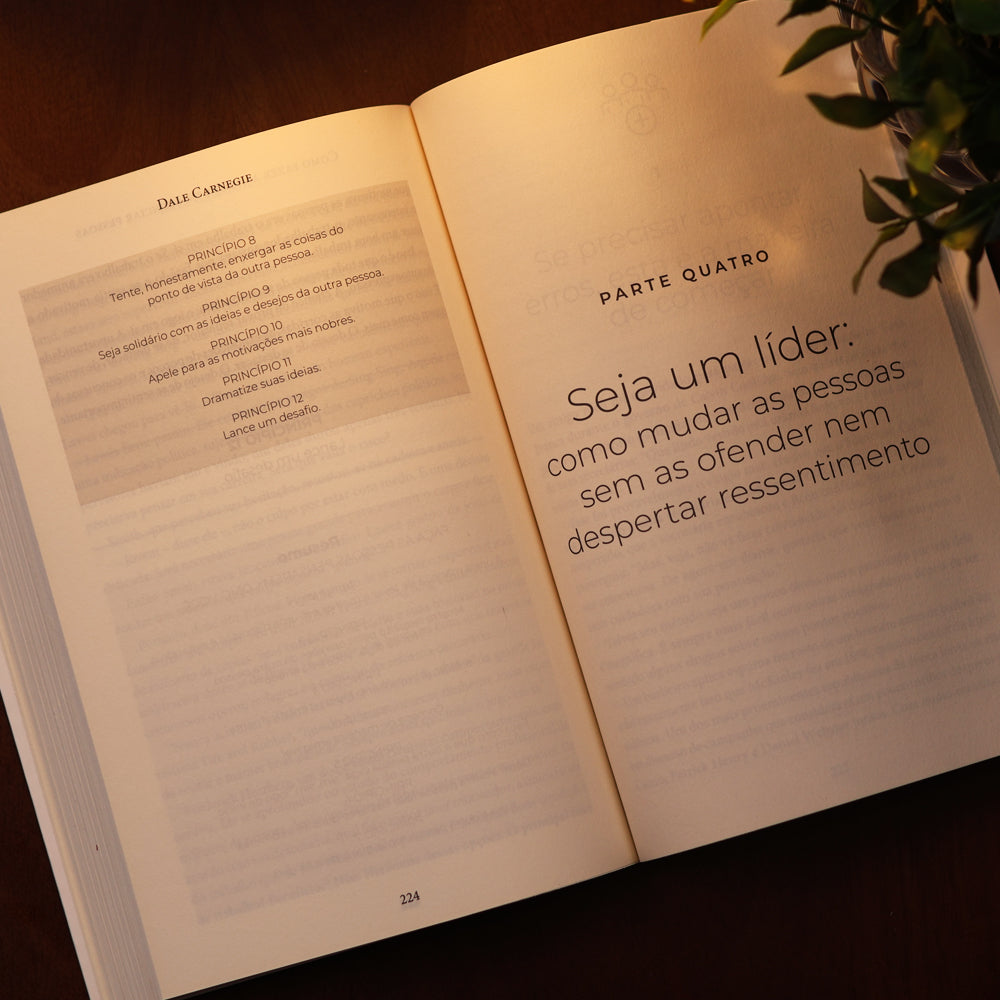 DALE CARNEGIE
PRINCÍPIO 8
Tente, honestamente, enxergar as coisas do
ponto de vista da outra pessoa.
PRINCÍPIO 9
Seja solidário com as ideias e desejos da outra pessoa.
PRINCÍPIO 10
Apele para as motivações mais nobres.
PRINCÍPIO 11
Dramatize suas ideias.
PRINCÍPIO 12
Lance um desafio.
224
PARTE QUATRO
Seja um líder:
como mudar as pessoas
sem as ofender nem
despertar ressentimento